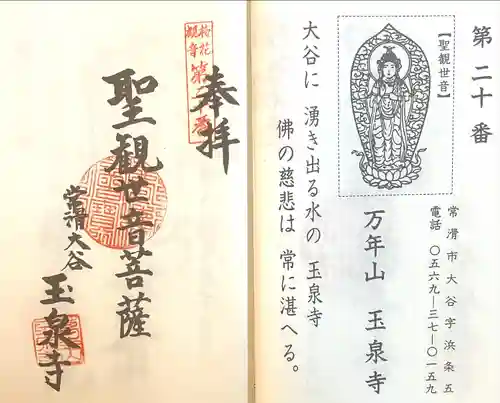 第二十番
【聖観世音】
常滑市大谷字浜条五
電話 〇五六九―三七―〇一五九
万年山 玉泉寺
大谷に 湧き出る水の 玉泉寺
佛の慈悲は 常に湛へる。
奉拝
梅花観音
第二十番
聖観世音菩薩
常滑大谷
玉泉寺